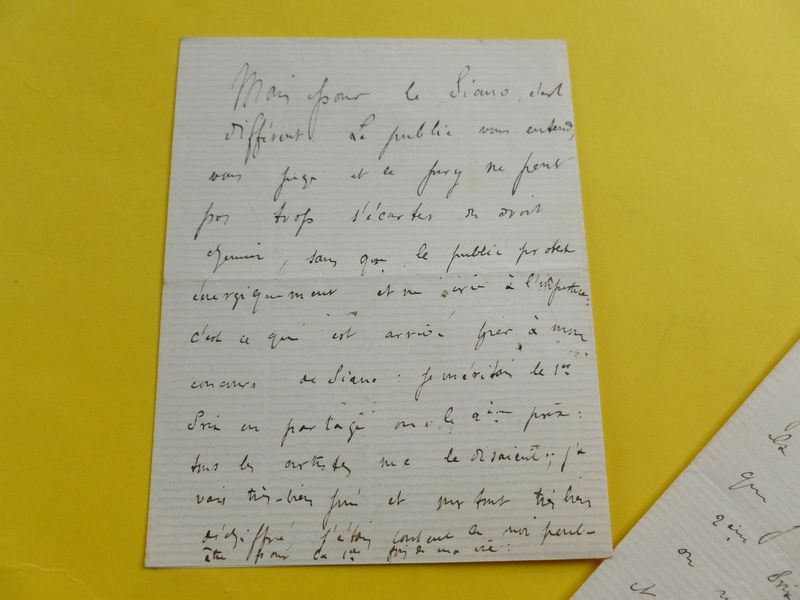 Mais pour le Piano, c'est
différent. Le public vous entend,
vous juge et le jury ne peut
pas trop s'écarter du droit
chemin, sans que le public proteste
énergiquement et ne crie à l'injustice :
c'est ce qui est arrivé hier à mon
concours de Piano : je méritais le 1er
Prix en partagé ou le 2ème prix :
tous les artistes me le disaient ; j'a
vais très-bien joué et surtout très bien
déchiffré j'étais content de moi peut-
être pour la 1ère fois de ma vie :
la
que
2ème
Prix
on
et